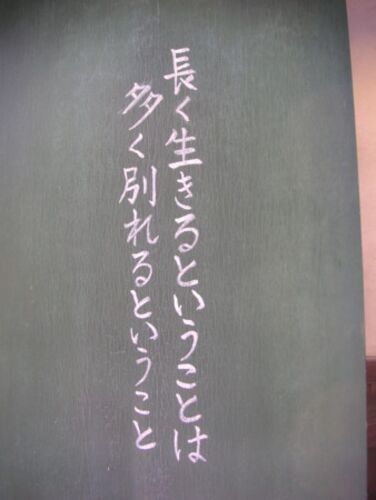 長く生きるということは
多く別れるということ